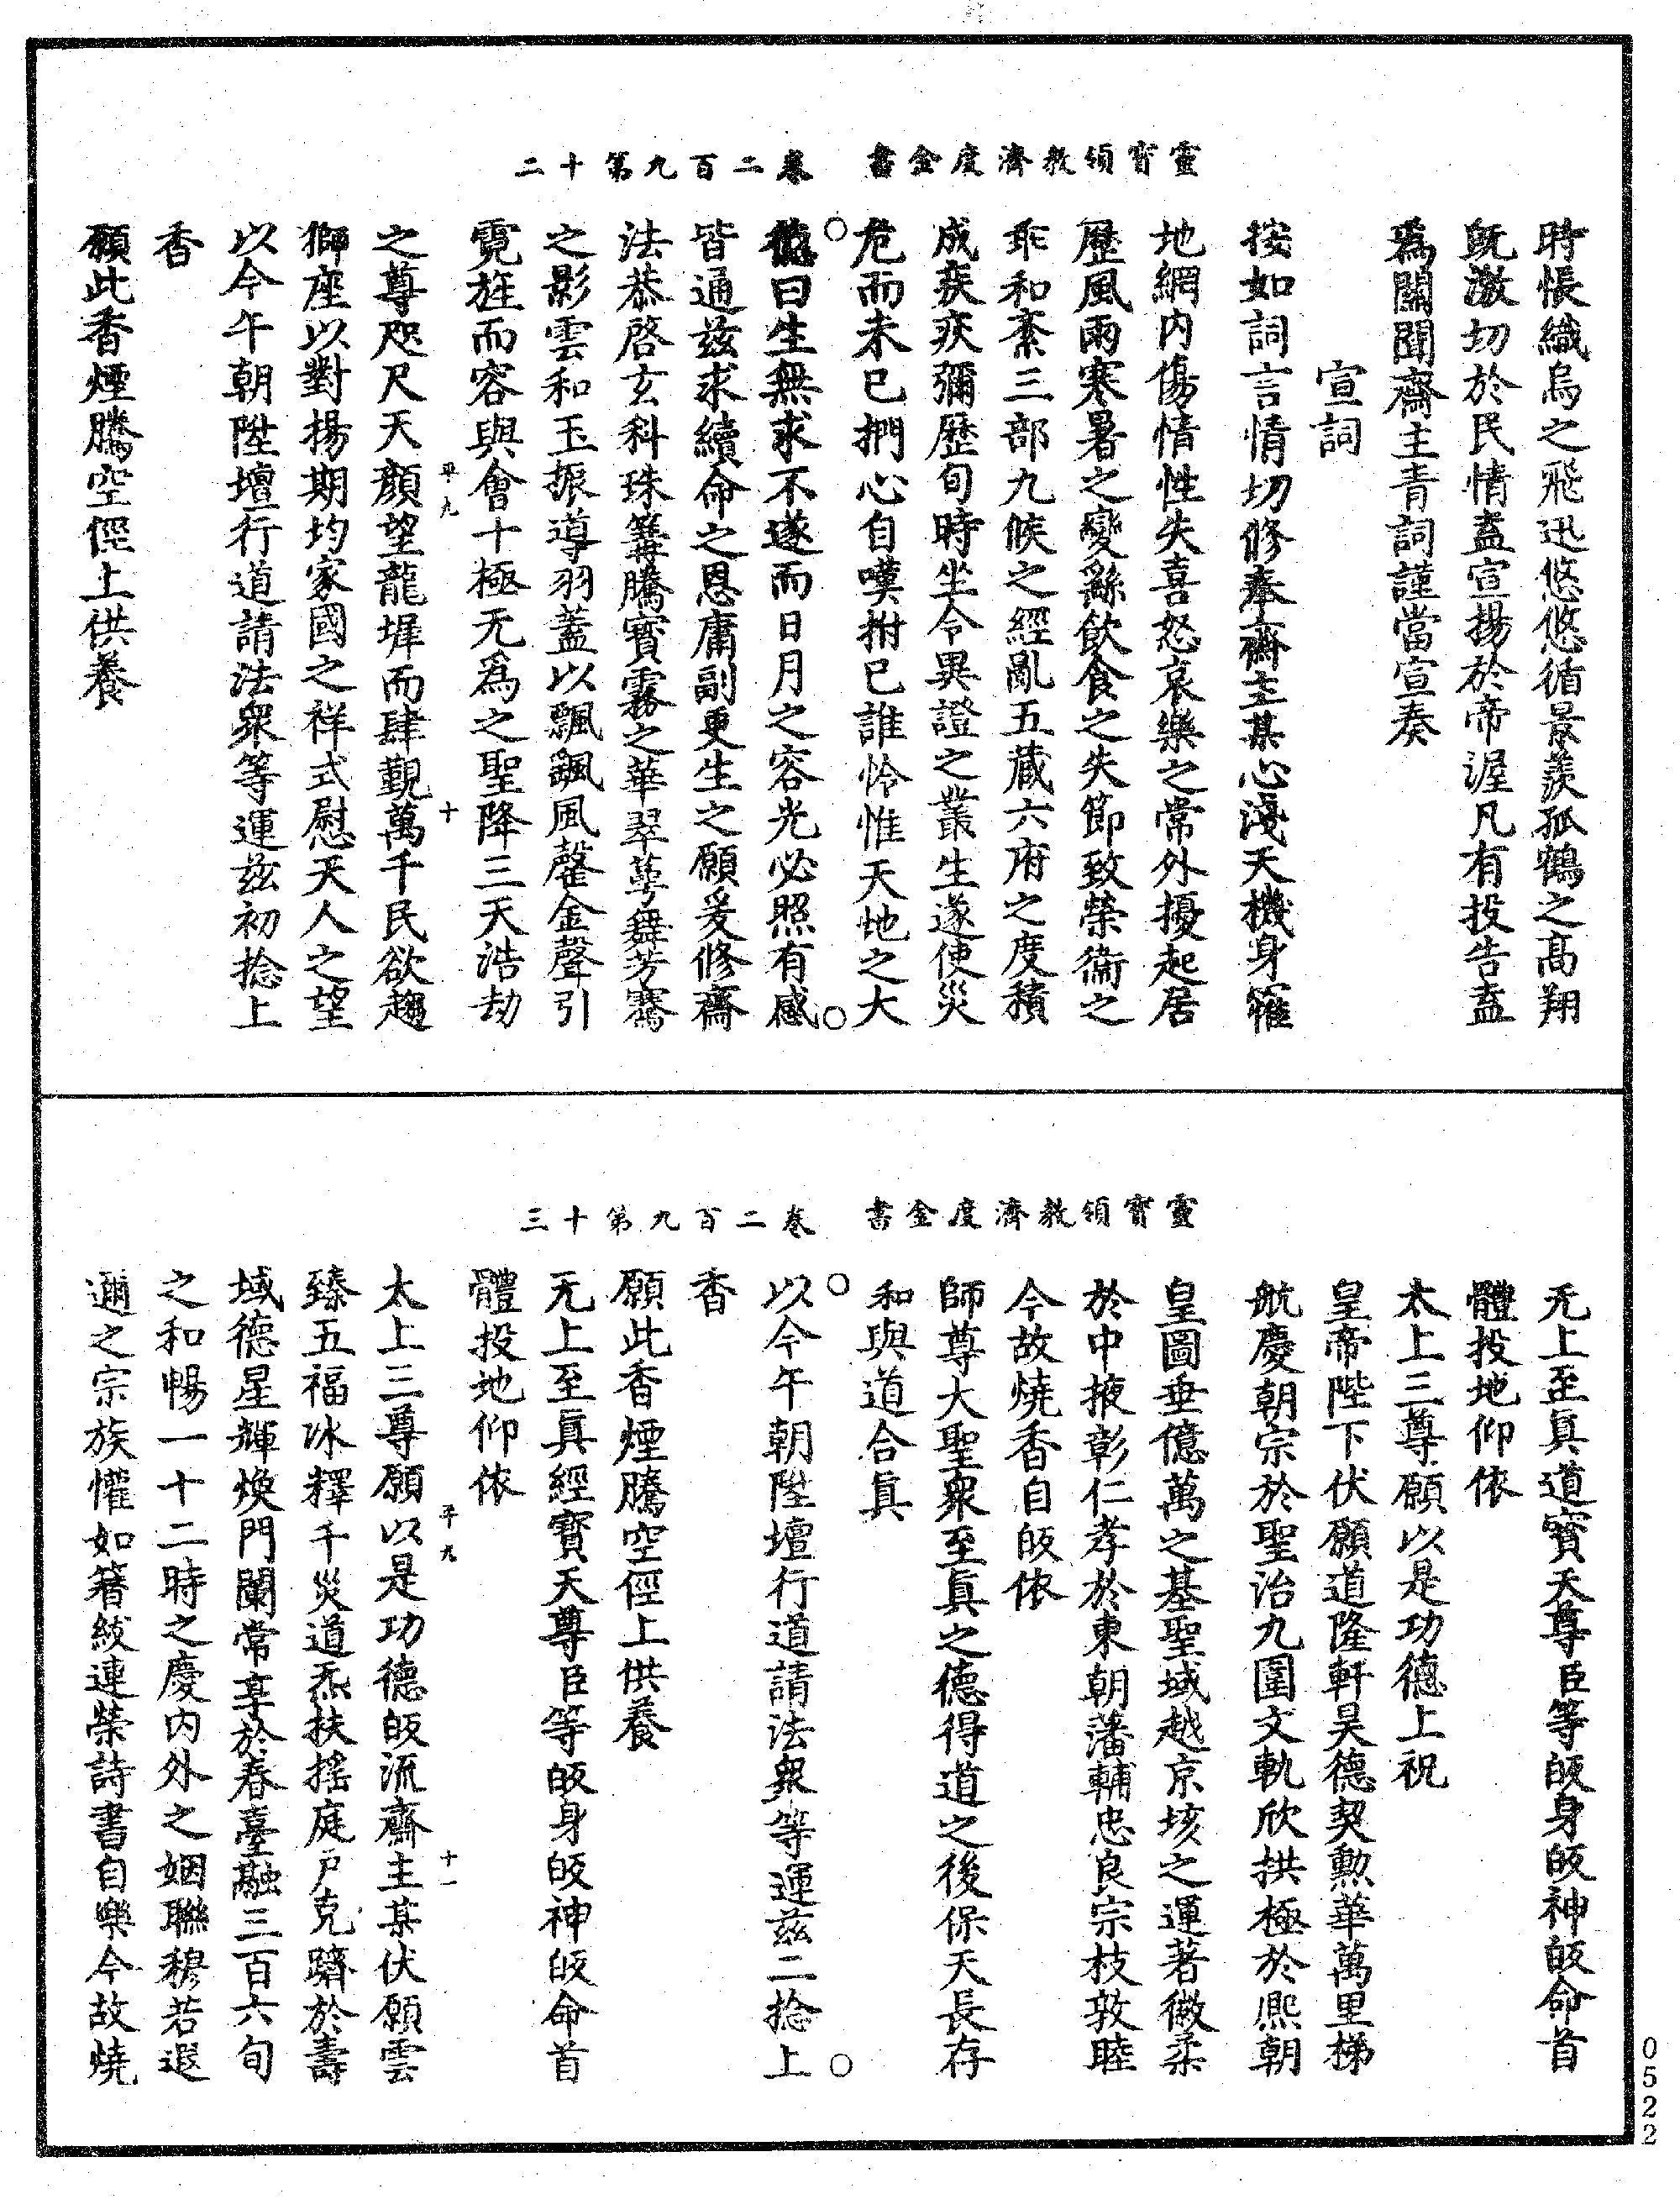 靈寳領教濟度金書　卷二百九第十二
時悵織烏之飛迅悠悠循景羨孤鶴之高翔
旣激切於民情盍宣揚於帝渥凡有投告盍
爲關聞齋主青詞謹當宣奏
宣詞
按如詞言情切修奉齋主某心淺天機身罹
地網内傷情性失喜怒哀樂之常外擾起居
歷風雨寒暑之變繇飲食之失節致榮衞之
乖和紊三部九候之經亂五藏六府之度積
成疾疢彌歷旬時坐令異證之叢生遂使災
危而未已捫心自嘆拊已誰怜惟天地之大
德曰生無求不遂而日月之容光必照有感
皆通兹求續命之恩庸副更生之願爰修齋
法恭啓玄科珠篝騰寳霧之華翠蕚舞芳騫
之影雲和玉振導羽蓋以飄飖風罄金聲引
霓旌而容與會十極无爲之聖降三天浩劫
之尊咫尺天顔望龍墀而肆覲萬千民欲趨
獅座以對揚期均家國之祥式慰天人之望
以今午朝陞壇行道請法衆等運兹初捻上
香
願此香煙騰空俓上供養
平九
十
靈寳領教濟度金書　卷二百九第十三
无上至眞道寳天尊臣等皈身皈神皈命首
體投地仰依
太上三尊願以是功德上祝
皇帝陛下伏願道隆軒昊德契勲華萬里梯
航慶朝宗於聖治九圍文軌欣拱極於熈朝
皇圖垂億萬之基聖域越京垓之運著徽柔
於中掖彰仁孝於東朝藩輔忠良宗枝敦睦
今故燒香自皈依
師尊大聖衆至眞之德得道之後保天長存
和與道合眞
以今午朝陞壇行道請法衆等運兹二捻上
香
願此香煙騰空俓上供養
无上至眞經寳天尊臣等皈身皈神皈命首
體投地仰依
太上三尊願以是功德皈流齋主某伏願雲
臻五福冰釋千災道炁扶搖庭户克躋於壽
域德星輝煥門闌常享於春臺融三百六旬
之和暢一十二時之慶内外之姻聯穆若遐
邇之宗族懽如簪紱連榮詩書自樂今故燒
平九
十一
0522